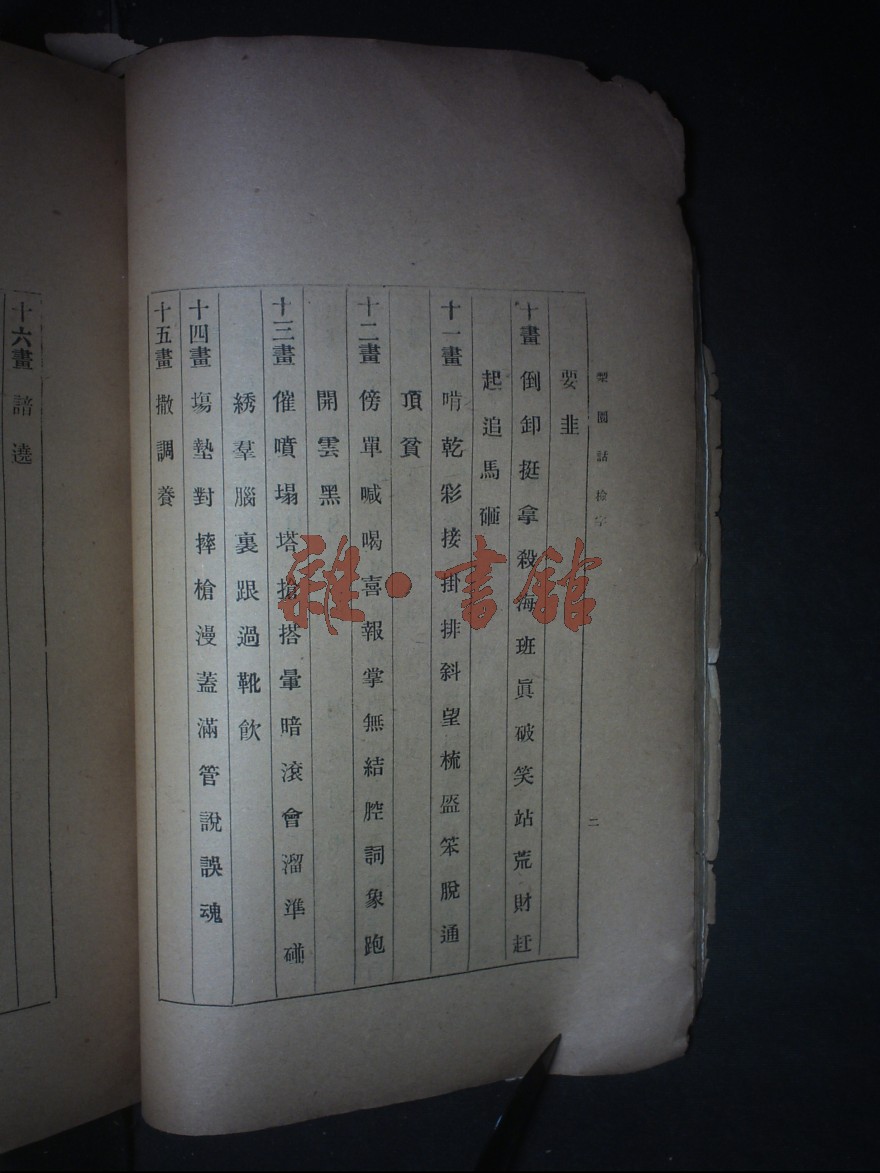 梨園話檢字
二
耍韭
十畫 倒卸挺拿殺海班眞破笑站荒財赶
起追馬砸
十一畫 啃乾彩接掛排斜望梳盔笨脫通
頂貧
十二畫 傍單喊喝喜報掌無結腔詞象跑
開雲黑
十三畫 催噴塌塔搶搭暈暗滾會溜準碰
綉羣腦裏跟過靴飮
十四畫 塲墊對摔槍漫蓋滿管說誤魂
十五畫 撒調養
十六畫 諳遶
雜·書館